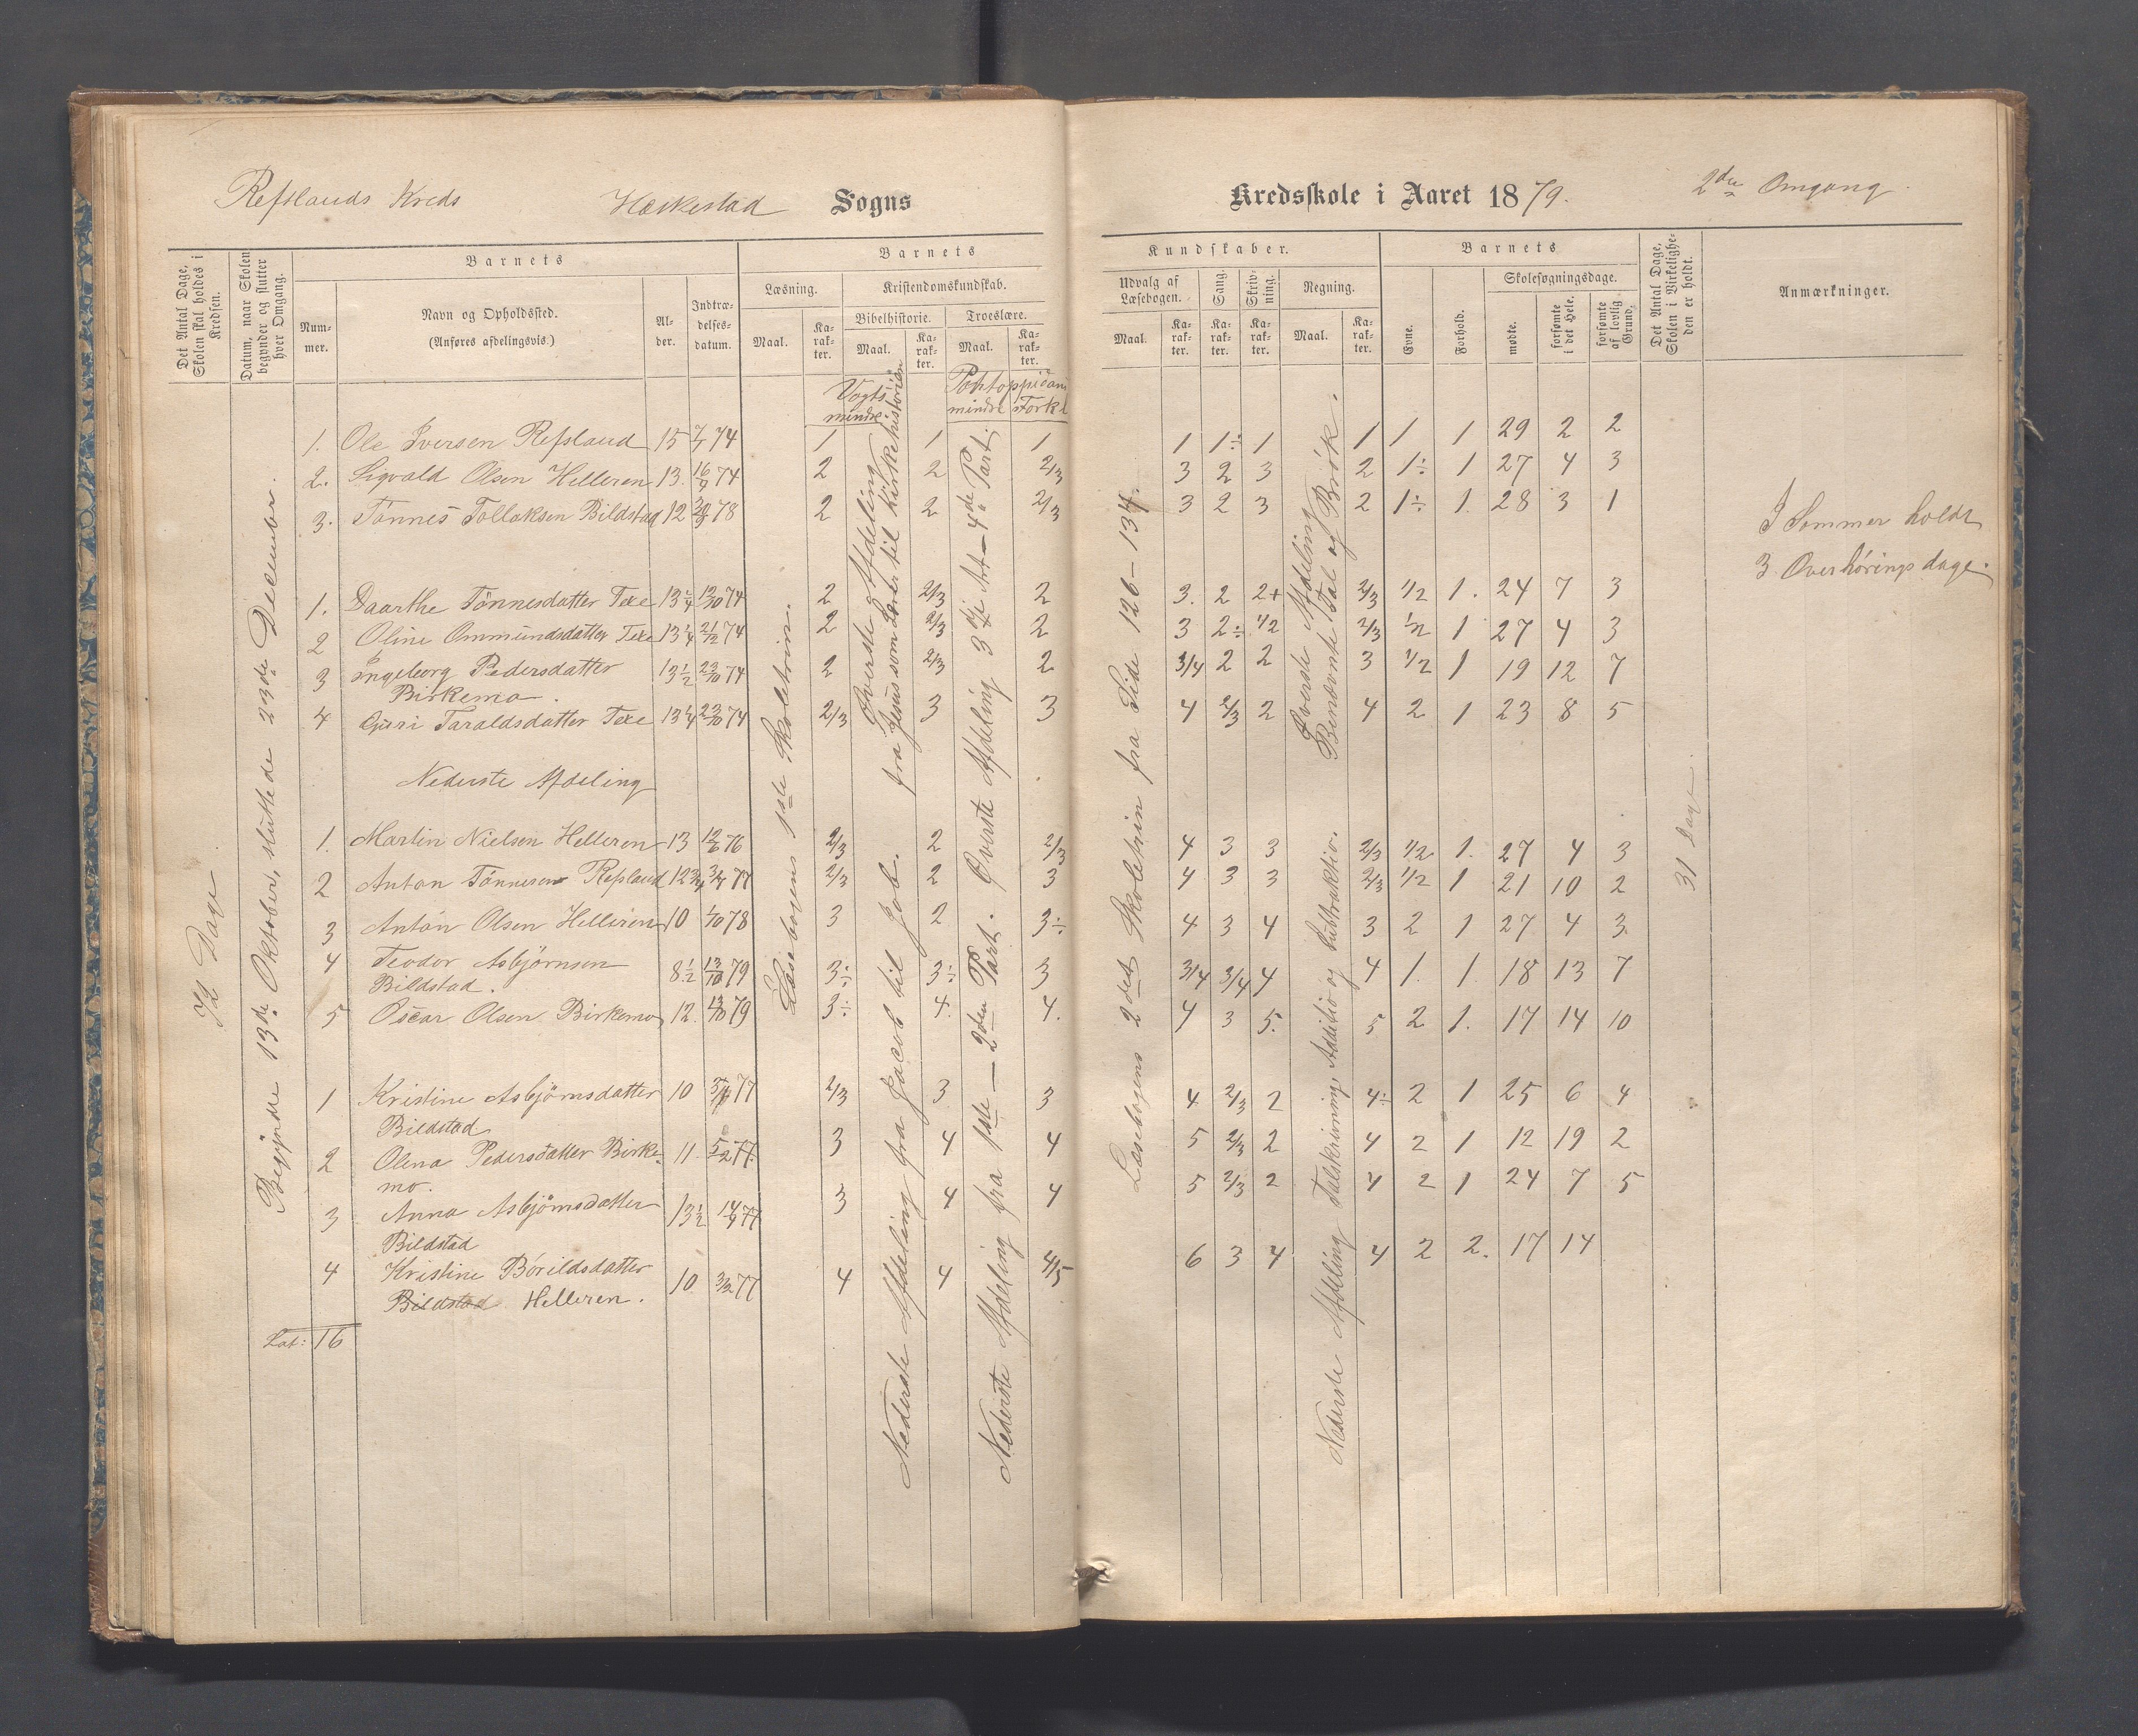 Refslands Kreds Heskestad Sogns Kredsskole i Aaret 1879. 2den Omgang.
Det Antal Dage, Skolen skal holdes i Kredsen.
Datum, naar Skolen begynder og slutter hver Omgang.
Barnets
Nummer.
Navn og Opholdssted.
(Anføres afdelingsvis.)
Alder.
Indtrædelsesdatum.
Barnets
Læsning.
Maal.
Karakter.
Kristendomskundskab.
Bibelhistorie.
Maal.
Karakter.
Troeslære.
Maal.
Karakter.
Kundskaber.
Udvalg af Læsebogen.
Maal.
Karakter.
Sang.
Karakter.
Skrivning.
Karakter.
Regning.
Maal.
Karakter.
Barnets
Evne.
Forhold.
Skolesøgningsdage.
mødte.
forsømte i det Hele.
forsømte af lovlig Grund.
Det Antal Dage, Skolen i Virkeligheden er holdt.
Anmærkninger.
72 Dage
Begyndte 13de Oktober, sluttede 23de December.
Læsebogens 1ste Skoletrin.
Vogts mindre
Øverste Afdeling
fra Jesus som Lærer til Kirkehistorien
Nederste Afdeling fra Jacob til Job.
Pontoppidans mindre Forkl.
Øverste Afdeling 3die Art. – 4de Part.
Nederste Afdeling fra 1ste – 2den Part.
Læsebogens 2det Skoletrin fra Side 126–134.
Øverste Afdeling
Benævnte Tal og Brök.
Nederste Afdeling Talskrivning, Additio og Subtraktio.
31 Dage.
I Sommer holdt
3 Overhørings dage.
1. Ole Iversen Refsland 15 7/7 74 1 1 1 1 1÷ 1 1 1 1 29 2 2
2. Sigvald Olsen Helleren 13. 16/9 74 2 2 2/3 3 2 3 2 1÷ 1 27 4 3
3. Tönnes Tollaksen Bildstad 12 78 2 2 2/3 3 2 3 2 1÷ 1. 28 3 1
1. Daarthe Tönnesdatter Texe 13 1/4 12/10 74 2 2/3 2 3. 2 2+ 2/3 1/2 1. 24 7 3
2 Oline Ommundsdatter Texe 13 1/4 21/12 74 2 2/3 2 3 2÷ 1/2 2/3 1/2 1 27 4 3
3 Ingeborg Pedersdatter 13 1/2 23/10 74 2 2/3 2 3/4 2 2 3 1/2 1 19 12 7
Birkemo.
4 Guri Taraldsdatter Texe 13 1/4 23/10 74 2/3 3 3 4 2/3 2 4 2 1 23 8 5
Nederste Afdeling
1. Martin Nielsen Helleren 13 12/6 76 2/3 2 2/3 4 3 3 2/3 1/2 1. 27 4 3
2 Anton Tönnesen Refsland 12 3/4 3/7 77 2/3 2 3 4 3 3 2/3 1/2 1 21 10 2
3 Anton Olsen Helleren 10 1/10 78 3 2 3÷ 4 3 4 3 2 1 27 4 3.
4 Teodor Asbjörnsen 8 1/2 13/10 79 3÷ 3÷ 3 3/4 3/4 4 4 1. 1. 18 13 7
Bildstad.
5 Oscar Olsen Birkemo 12. 13/10 79 3÷ 4. 4. 4 3 5. 5 2 1. 17 14 10
1 Kristine Asbjörnsdatter 10 77 2/3 3 3 4 2/3 2 4÷ 2 1 25 6 4
Bildstad
2 Olena Pedersdatter Birke- 11 5/2 77. 3 4 4 5 2/3 2 4 2 1 12 19 2
mo.
3 Anna Asbjörnsdatter 13 1/2 14/9 77 3 4 4 5 2/3 2 4 2 1 24 7 5
Bildstad
4 Kristine Börildsdatter 10 3/12 77 4 4 4/5 6 3 4 4 2 2. 17 14
Bildstad Helleren.
Lat: 16